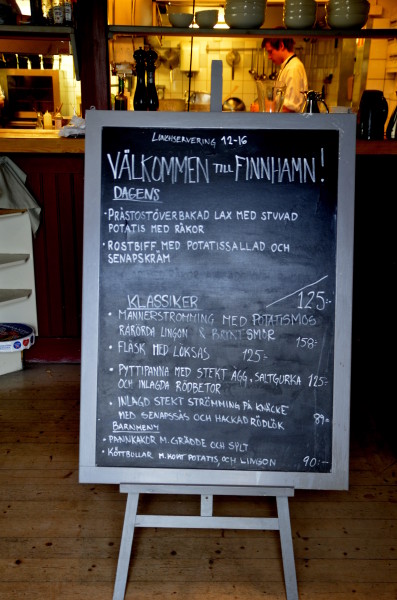 LUNCHSERVERING 12-16
VÄLKOMMEN TILL FINNHAMN!
DAGENS
• PRÄSTOSTÖVERBAKAD LAX MED STUVAD
POTATIS MED RÄKOR
• ROSTBIFF MED POTATISSALLAD OCH
SENAPSKRÄM
125:-
KLASSIKER
• MANNERSTRÖMMING MED POTATISMOS
RÅRÖRDA LINGON & BRYNT SMÖR 158:-
• FLÄSK MED LÖKSÅS 125:-
• PYTTIPANNA MED STEKT ÄGG, SALTGURKA 125:-
OCH INLAGDA RÖDBETOR
• INLAGD STEKT STRÖMMING PÅ KNÄCKE
MED SENAPSSÅS OCH HACKAD RÖDLÖK 89:-
BARNMENY
• PANNKAKOR M. GRÄDDE OCH SYLT
• KÖTTBULLAR M. KOKT POTATIS, OCH LINGON 90:-